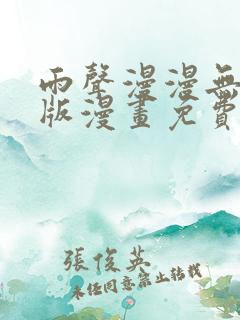 雨聲漫漫無
版漫畫免費
張俊英
未經同意禁止轉載